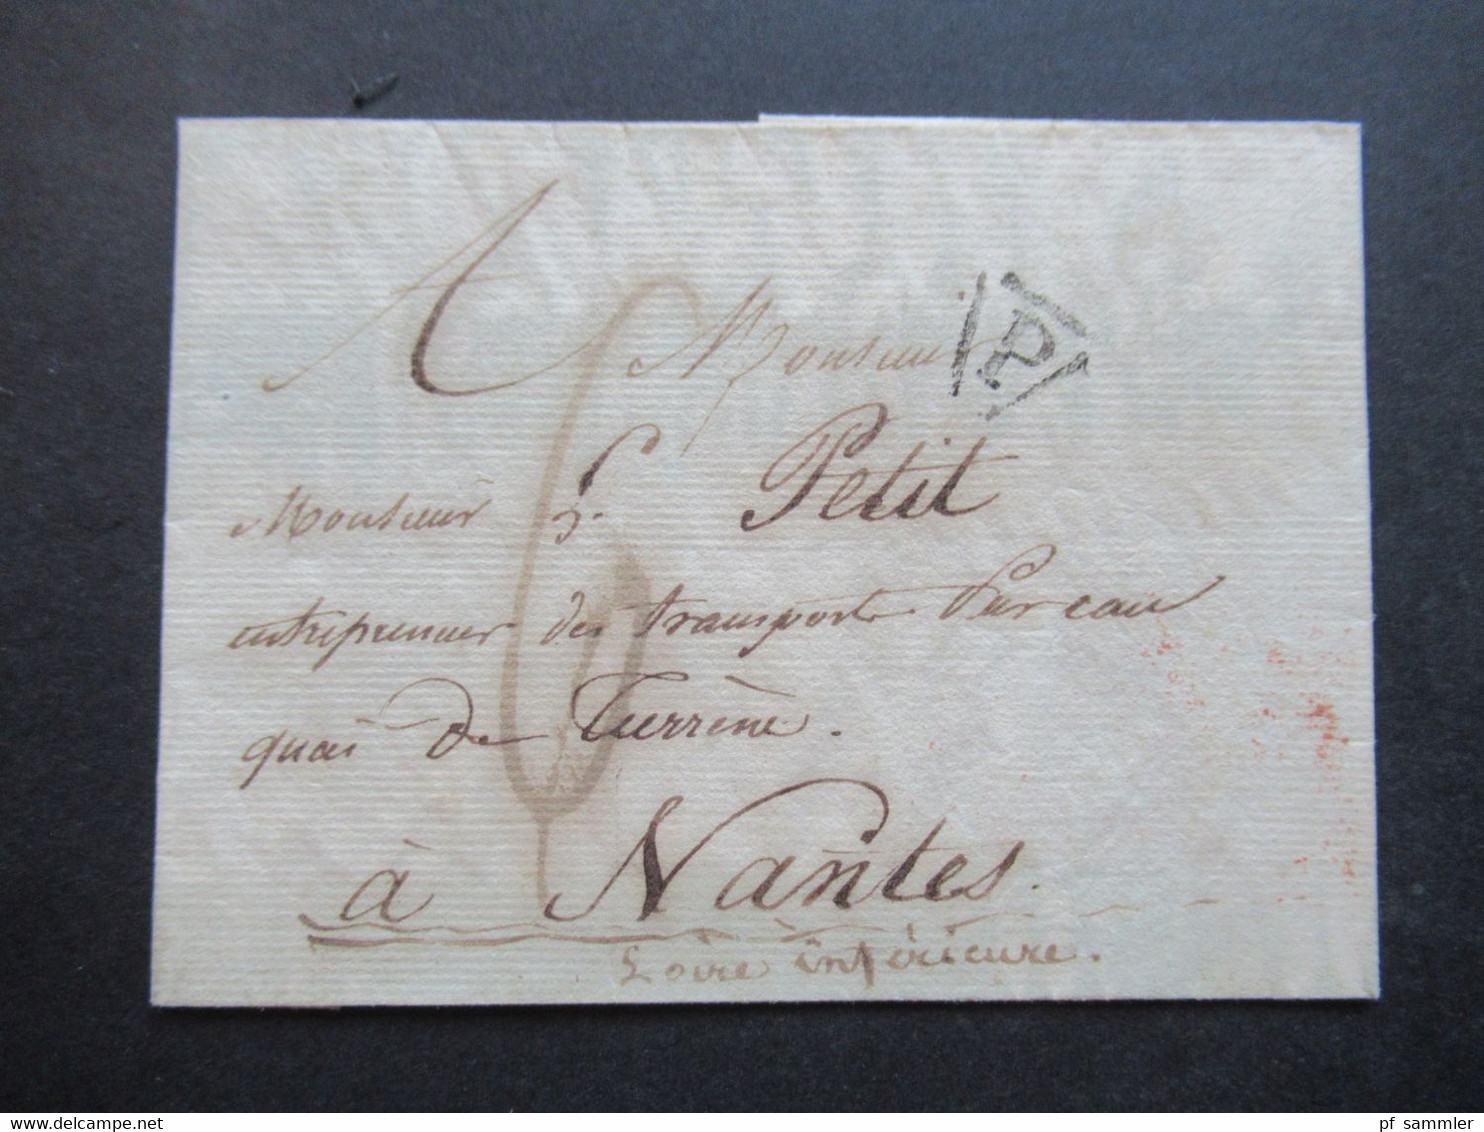 A Monsieur
P
Monsieur L. Petit
entrepreneur des transports par eau
quai de Turrène.
6
à Nantes.
Loire inférieure.
delcampe.net
pf_sammler